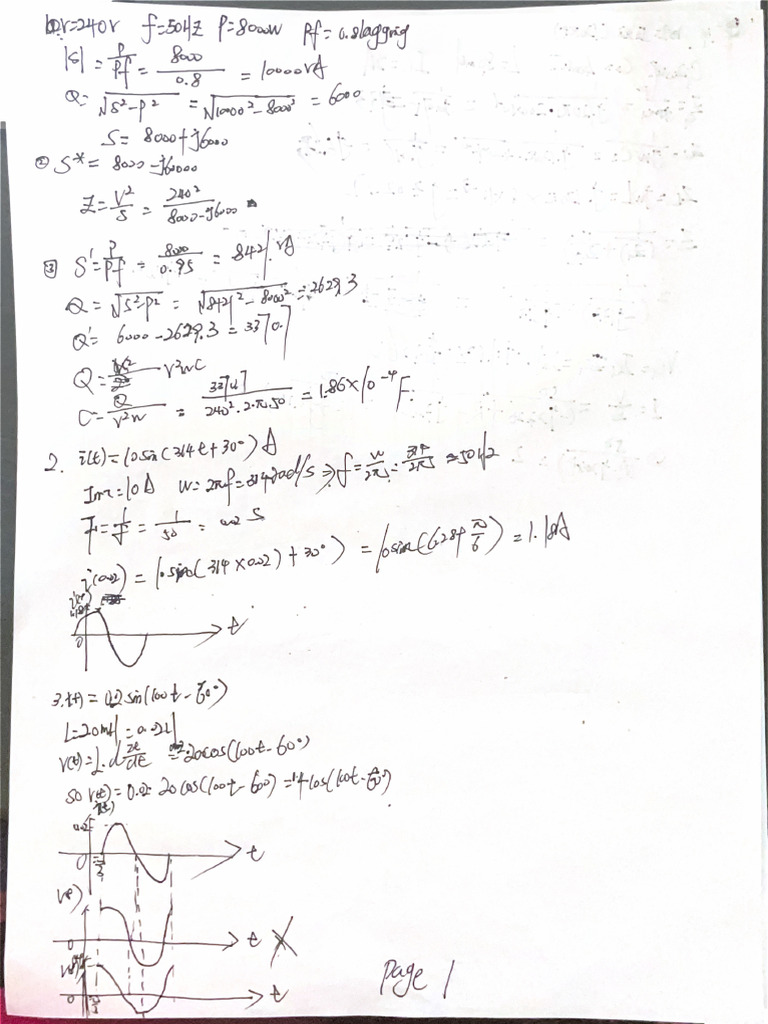 V=240V f=50HZ P=8000W Pf=0.8lagging
|S|=P/Pf=8000/0.8=10000VA
Q=√S²-P²=√10000²-8000²=6000
S=8000+j6000
② S*=8000-j6000
Z=V²/S=240²/8000-j6000
③ S'=P/Pf=8000/0.95=8421VA
Q=√S²-P²=√8421²-8000²=2629.3
Q'=6000-2629.3=3370.7
Q= V²wC
C=Q/V²w=3370.7/240².2.π.50=1.86×10⁻⁴F.
2. i(t)=10sin(314t+30°)A
Im=10A w=2πf=314rad/s⇒f=w/2π=314/2π≈50HZ
T=1/f=1/50=0.02S
i(0.02)=10sin(314×0.02)+30°)=10sin(6.28+π/6)=
0 t
3. i(t)=0.2sin(100t-60°)
L=20mH=0.02H
V(t)=L.d /dt 20cos(100t-60°)
so V(t)=0.02 20cos(100t-60°)=
0 t
V(t)
0 t
0 t
Page 1